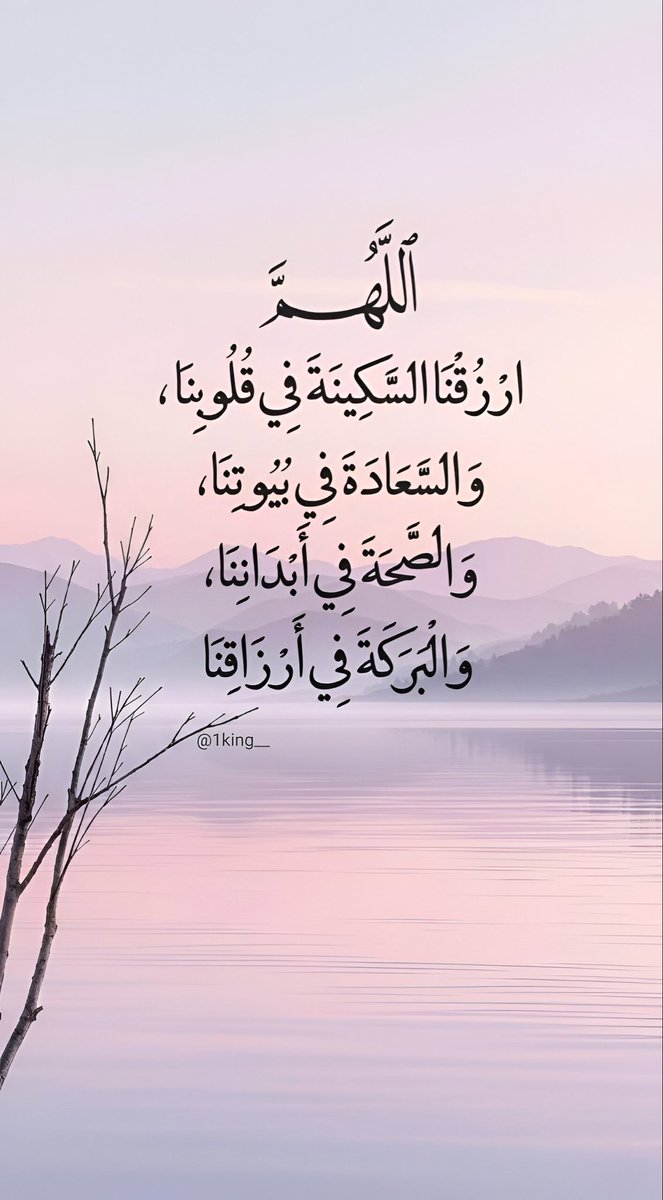 اَللَّهُمَّ
ارْزُقْنَا السَّكِينَةَ فِي قُلُوبِنَا،
وَالسَّعَادَةَ فِي بُيُوتِنَا،
وَالصَّحَةَ فِي أَبْدَانِنَا،
وَالْبَرَكَةَ فِي أَرْزَاقِنَا
@1king__